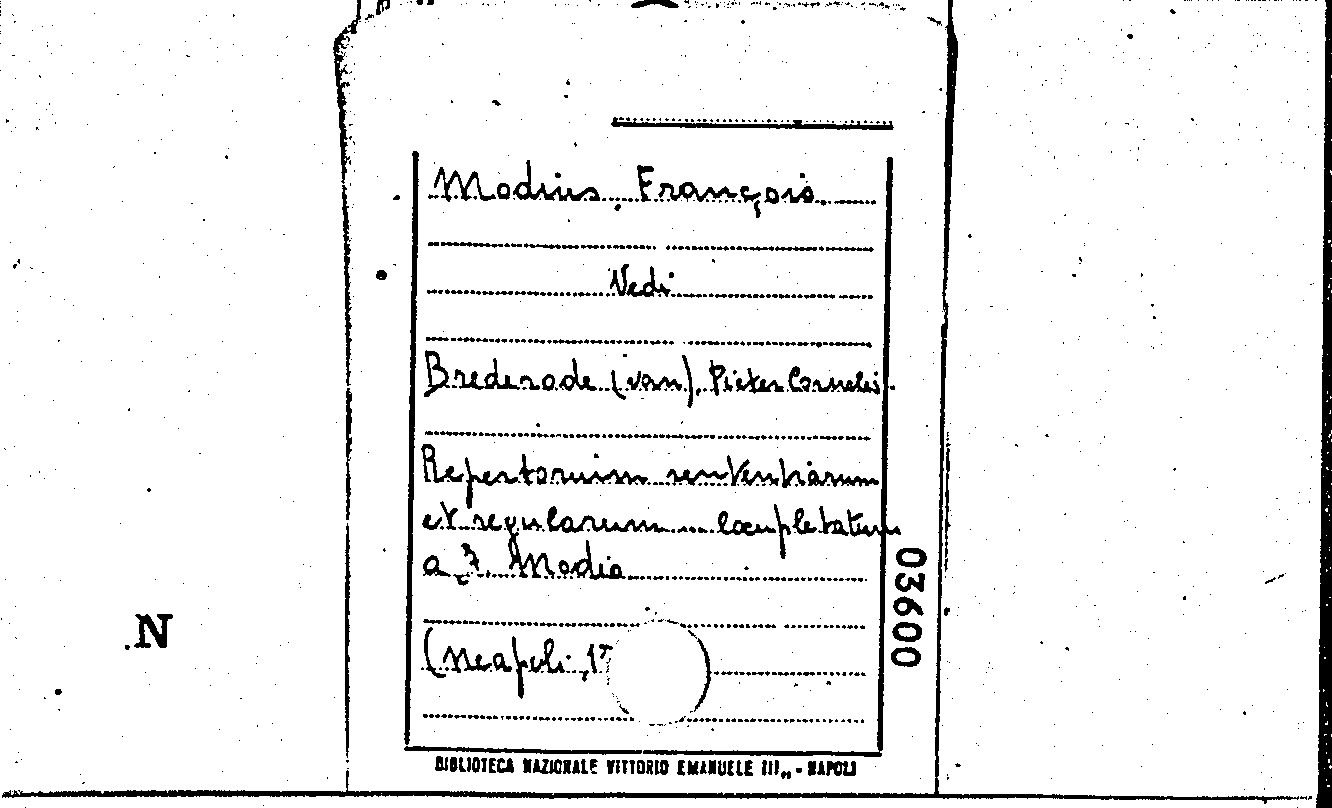 Modius, François.
Vedi
Brederode (van), Pieter Cornelis.
Repertorium sententiarum
et regularum ... locupletatum
a F. Modio
(Neapoli, 17
03600
N
BIBLIOTECA NAZIONALE VITTORIO EMANUELE III„ - NAPOLI